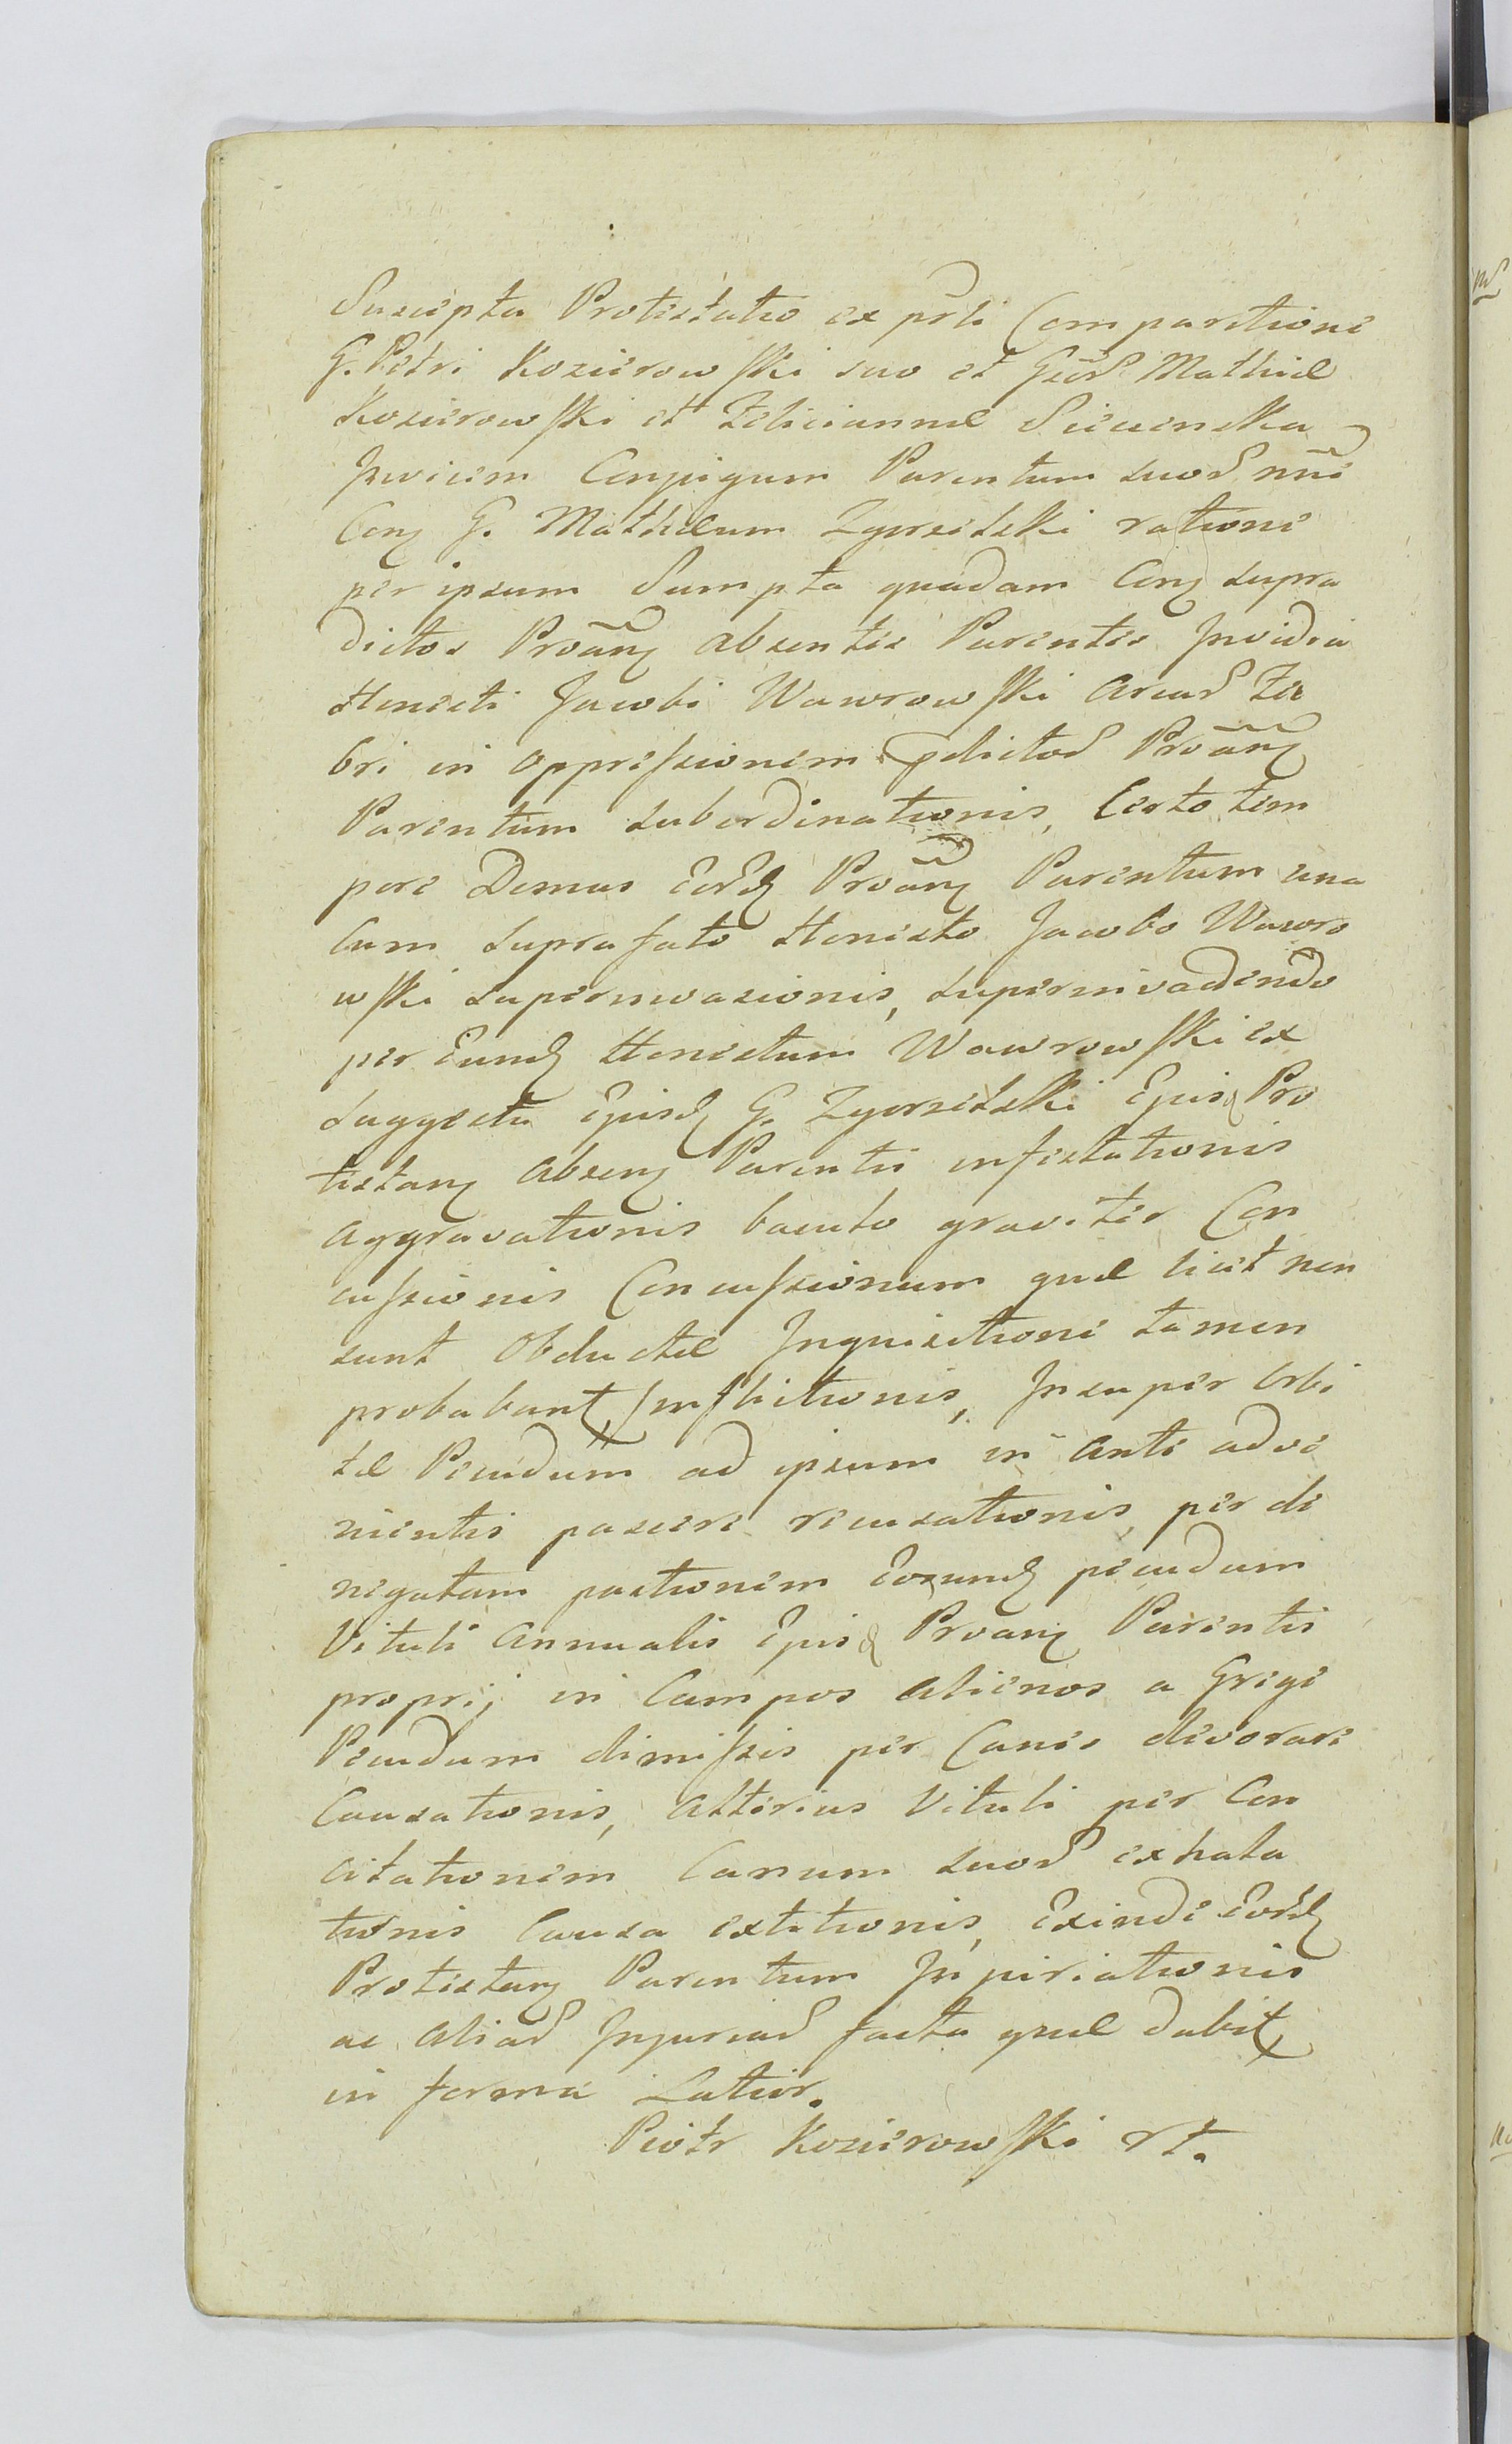 Suscepta Protestatio ex prli Comparitione
G. Petri Kozierowski suo et Gsor Mathiæ
Kozierowski et Feliciannæ Siecienska
Invicem Conjugum Parentum suor nne
Con G. Mathæum Zgorzelski ratione
per ipsum Sumpta quadam Con supra
dictos Proan absentes Parentes Invidia
Honesti Jacobi Wawrowski Arcar Fa
bri in oppressionem pdictor Proan
Parentum subordinationis, Certo tem
pore Domus Eord Proan Parentum una
Cum suprafato Honesto Jacobo Wawro
wski superinvasionis, superinvadendo
per Eund Honestum Wawrowski ex
suggestu Ejusd G. Zgorzelski Ejusd Pro
testan absen Parentis infestationis
aggravationis baculo graviter Con
cussionis Concussionum quæ licet non
sunt Obductæ Inquisitione tamen
probabunt Inflictionis, Insuper Orbi
tæ Pecudum ad ipsum in Ante adve
nientis pascere recusationis, per de
negatam pastionem Eorund pecudum
Vituli Annualis Ejusd Proan Parentis
proprij in Campos alienos a Grege
Pecudum dimissis per Canes devorare
Causationis, Alterius Vituli per Con
citationem Canum suor exhala
tionis Causa extitionis, Exinde Eord
Protestan Parentum Injuriationis
ac aliar Injuriar facta quæ dabit
in forma Latior.
Piotr Kozierowski rt.